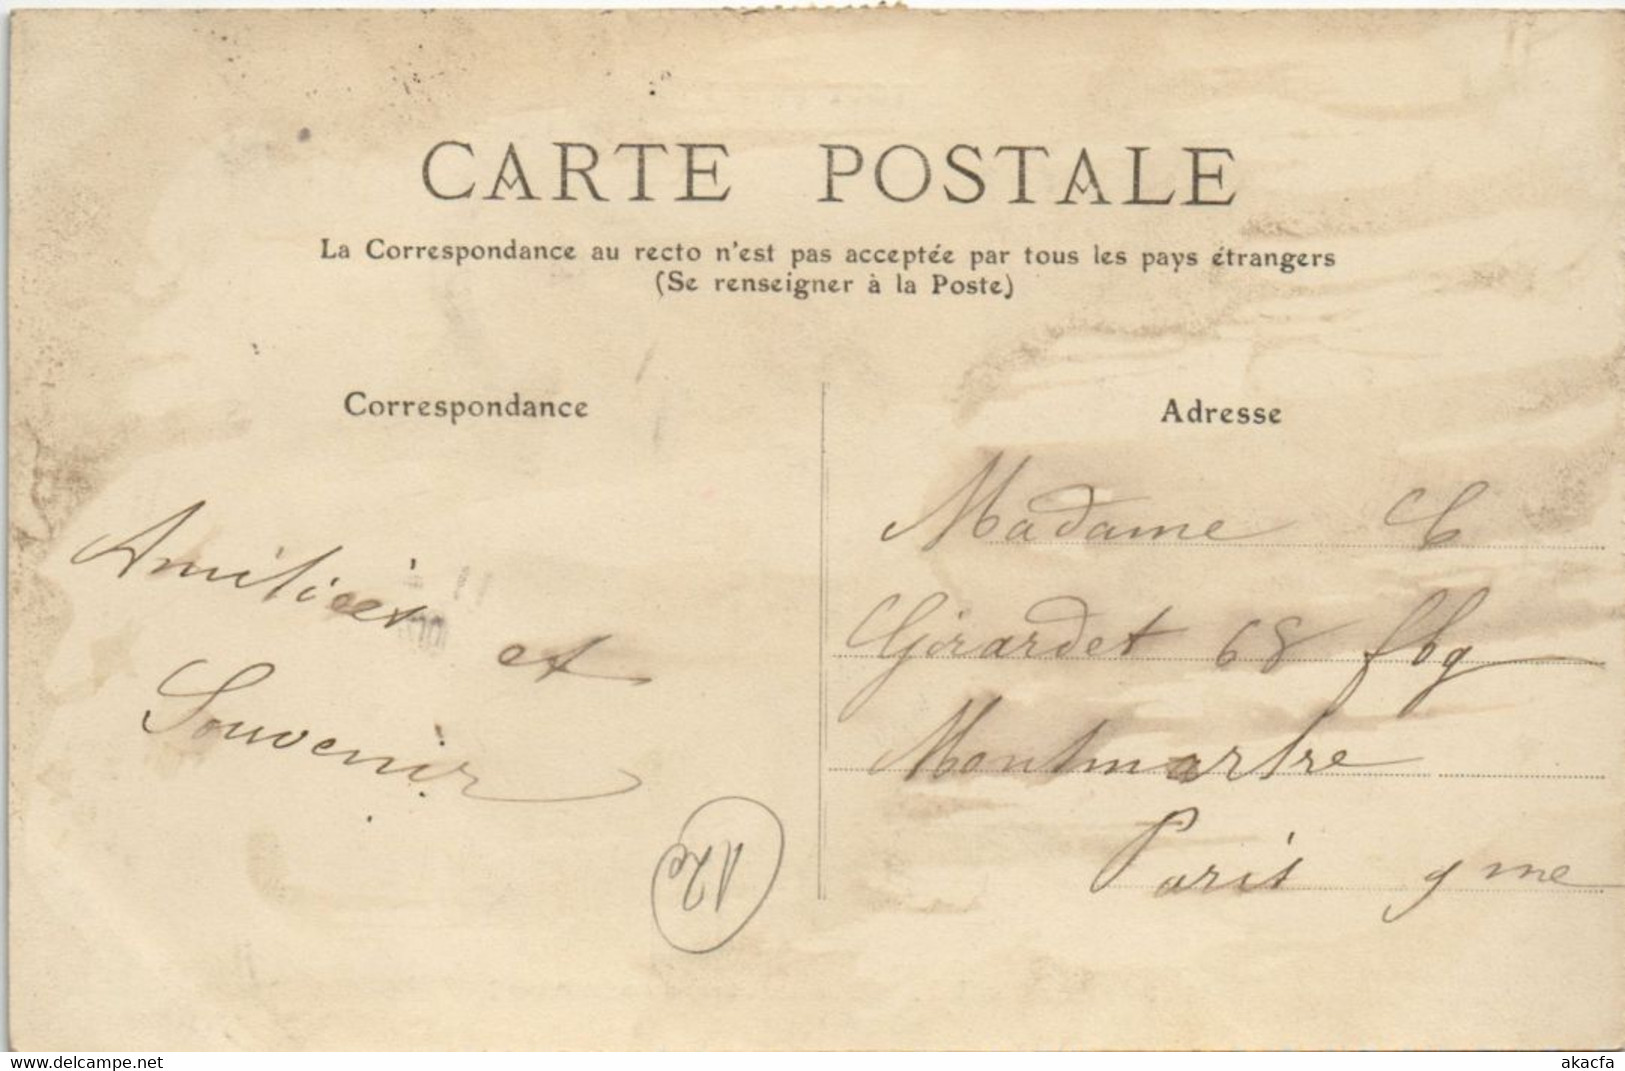 CARTE POSTALE
La Correspondance au recto n'est pas acceptée par tous les pays étrangers
(Se renseigner à la Poste)
Correspondance
Amitiées et
Souvenir
Adresse
Madame C
Girardet 68 fbg
Montmartre
Paris 9me
www.delcampe.net
akacfa